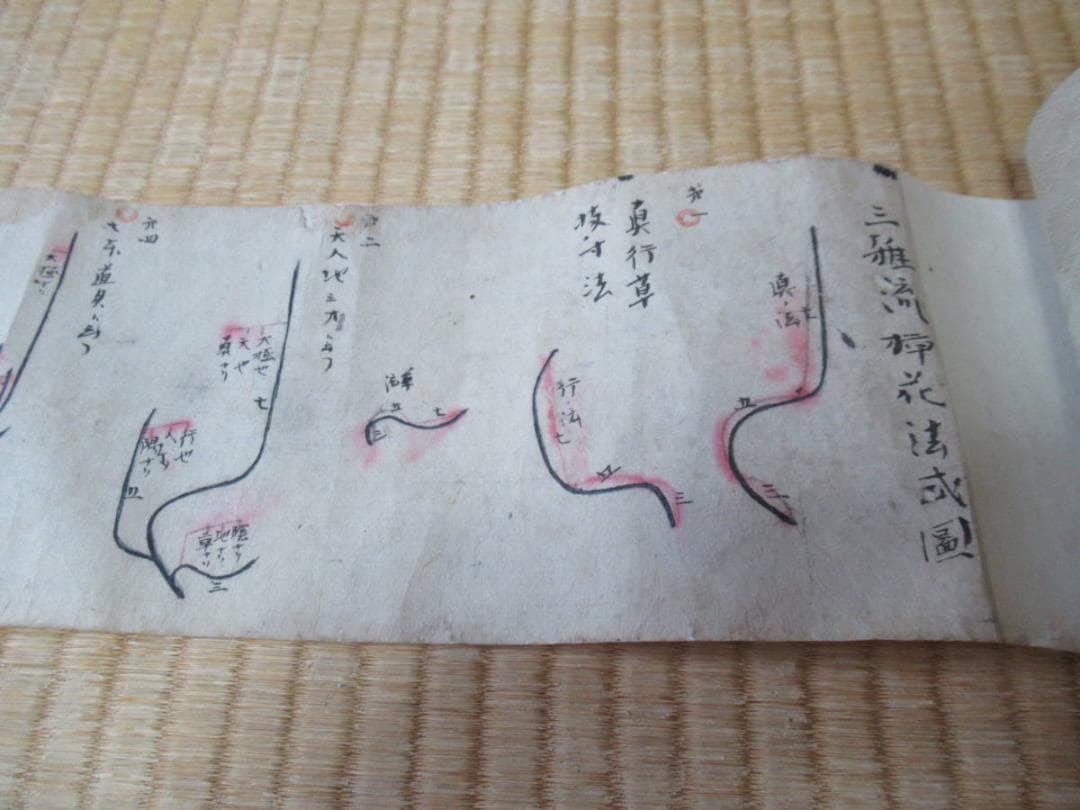 三雅流挿花法式圖
真ノ法
七
五
三
第一
真行草
投寸法
行ノ法
七
五
三
草法
七
五
三
第二
天人地三才
太極也
天也
真ナリ
七
行也
人ナリ
陽ナリ
五
陰ナリ
地ナリ
草ナリ
三
第四
太極ナリ